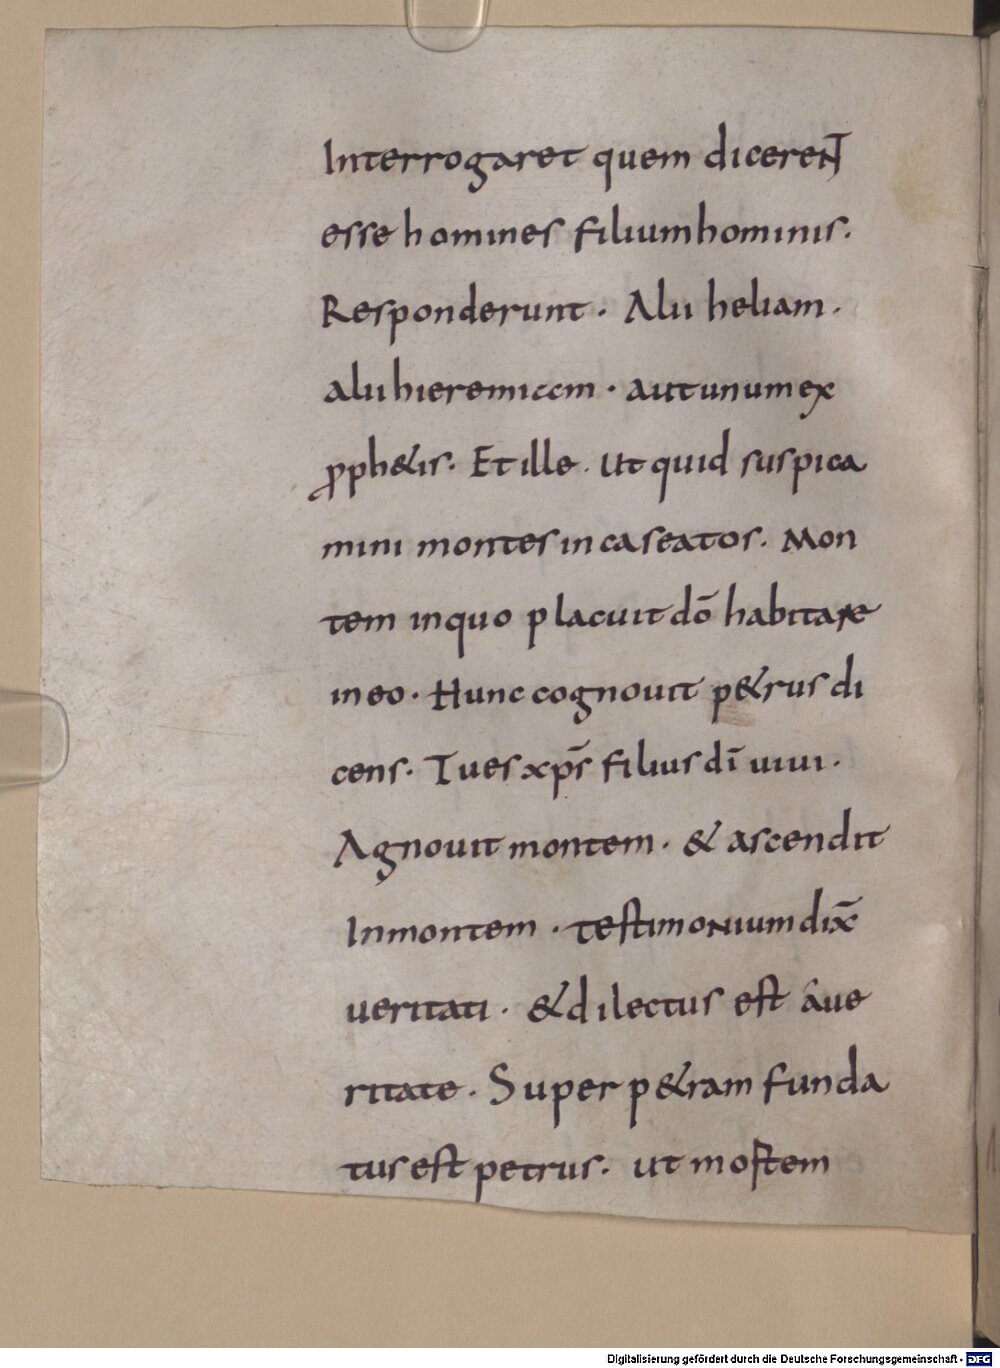 Interrogaret quem dicerent
esse homines filium hominis.
Responderunt · Alii heliam ·
alii hieremiam · aut unum ex
p̱ph&is. Et ille. Ut quid suspica
mini montes in caseatos. Mon
tem in quo placuit dō habitare
in eo · Hunc cognouit p&rus di
cens. Tu es xp̄s filius dī uiui ·
Agnouit montem · & ascendit
In montem · testimonium dix̄
ueritati · & dilectus est áue
ritate · Super p&ram funda
tus est petrus. ut mostem
Digitalisierung gefördert durch die Deutsche Forschungsgemeinschaft - DFG